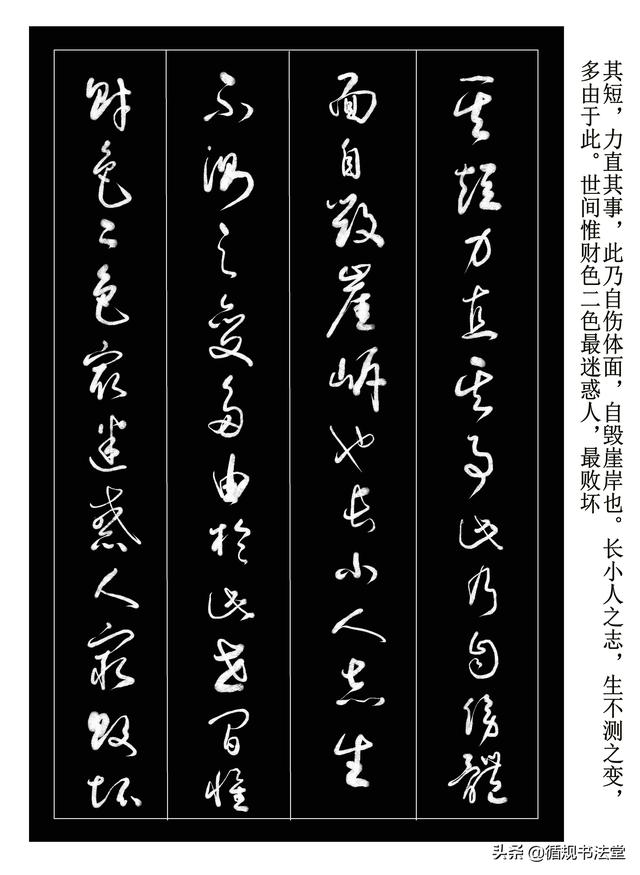 其短，力直其事，此乃自伤体面，自毁崖岸也。长小人之志，生不测之变，
多由于此。世间惟财色二色最迷惑人，最败坏
其短力直其事此乃自傷體
面自毀崖岸也长小人志生
不測之變多由於此世間惟
財色二色最迷惑人最敗坏
头条 @循规书法堂